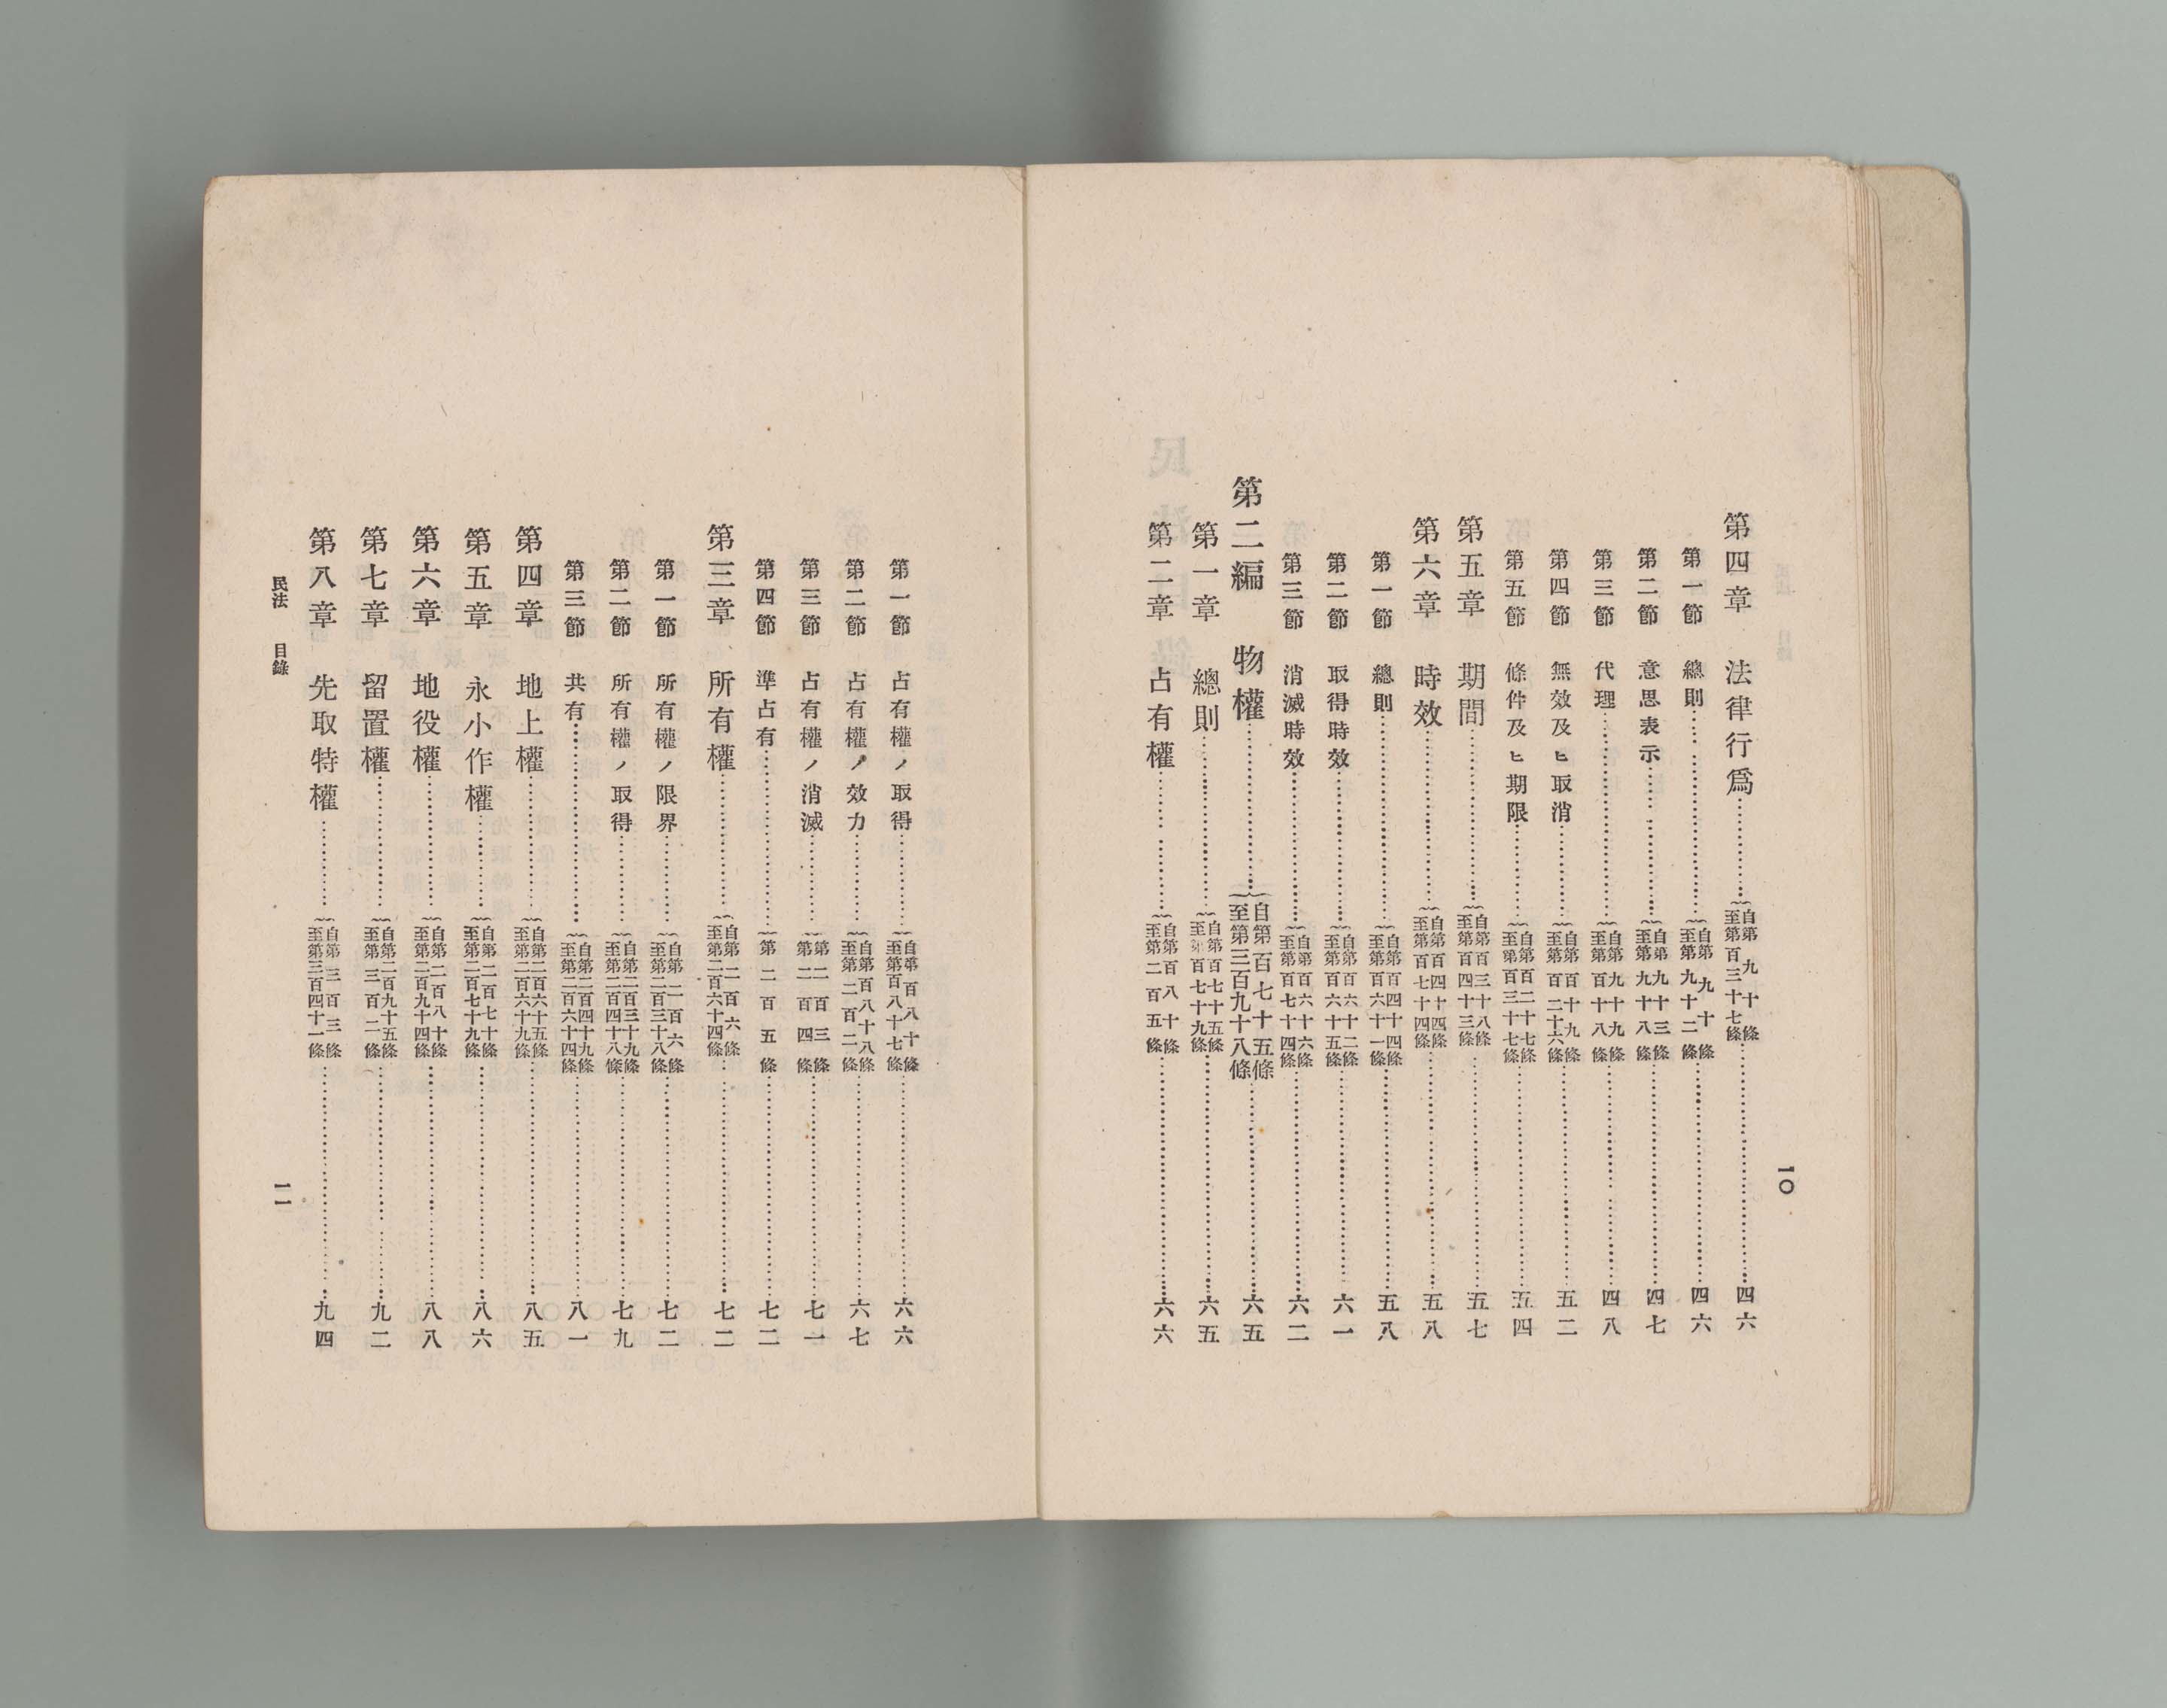 一〇
第四章 法律行爲……{自第九十條 至第百三十七條……四六
第一節 總則……{自第九十條 至第九十二條……四六
第二節 意思表示……{自第九十三條 至第九十八條……四七
第三節 代理……{自第九十九條 至第百十八條……四八
第四節 無效及ヒ取消……{自第百十九條 至第百二十六條……五二
第五節 條件及ヒ期限……{自第百二十七條 至第百三十七條……五四
第五章 期間……{自第百三十八條 至第百四十三條……五七
第六章 時效……{自第百四十四條 至第百七十四條……五八
第一節 總則……{自第百四十四條 至第百六十一條……五八
第二節 取得時效……{自第百六十二條 至第百六十五條……六一
第三節 消滅時效……{自第百六十六條 至第百七十四條……六二
第二編 物權……{自第百七十五條 至第三百九十八條……六五
第一章 總則……{自第百七十五條 至第百七十九條……六五
第二章 占有權……{自第百八十條 至第二百五條……六六
第一節 占有權ノ取得……{自第百八十條 至第百八十七條……六六
第二節 占有權ノ效力……{自第百八十八條 至第二百二條……六七
第三節 占有權ノ消滅……{第二百三條 第二百四條……七一
第四節 準占有……{第二百五條……七二
第三章 所有權……{自第二百六條 至第二百六十四條……七二
第一節 所有權ノ限界……{自第二百六條 至第二百三十八條……七二
第二節 所有權ノ取得……{自第二百三十九條 至第二百四十八條……七九
第三節 共有……{自第二百四十九條 至第二百六十四條……八一
第四章 地上權……{自第二百六十五條 至第二百六十九條……八五
第五章 永小作權……{自第二百七十條 至第二百七十九條……八六
第六章 地役權……{自第二百八十條 至第二百九十四條……八八
第七章 留置權……{自第二百九十五條 至第三百二條……九二
第八章 先取特權……{自第三百三條 至第三百四十一條……九四
民法 目錄
一一